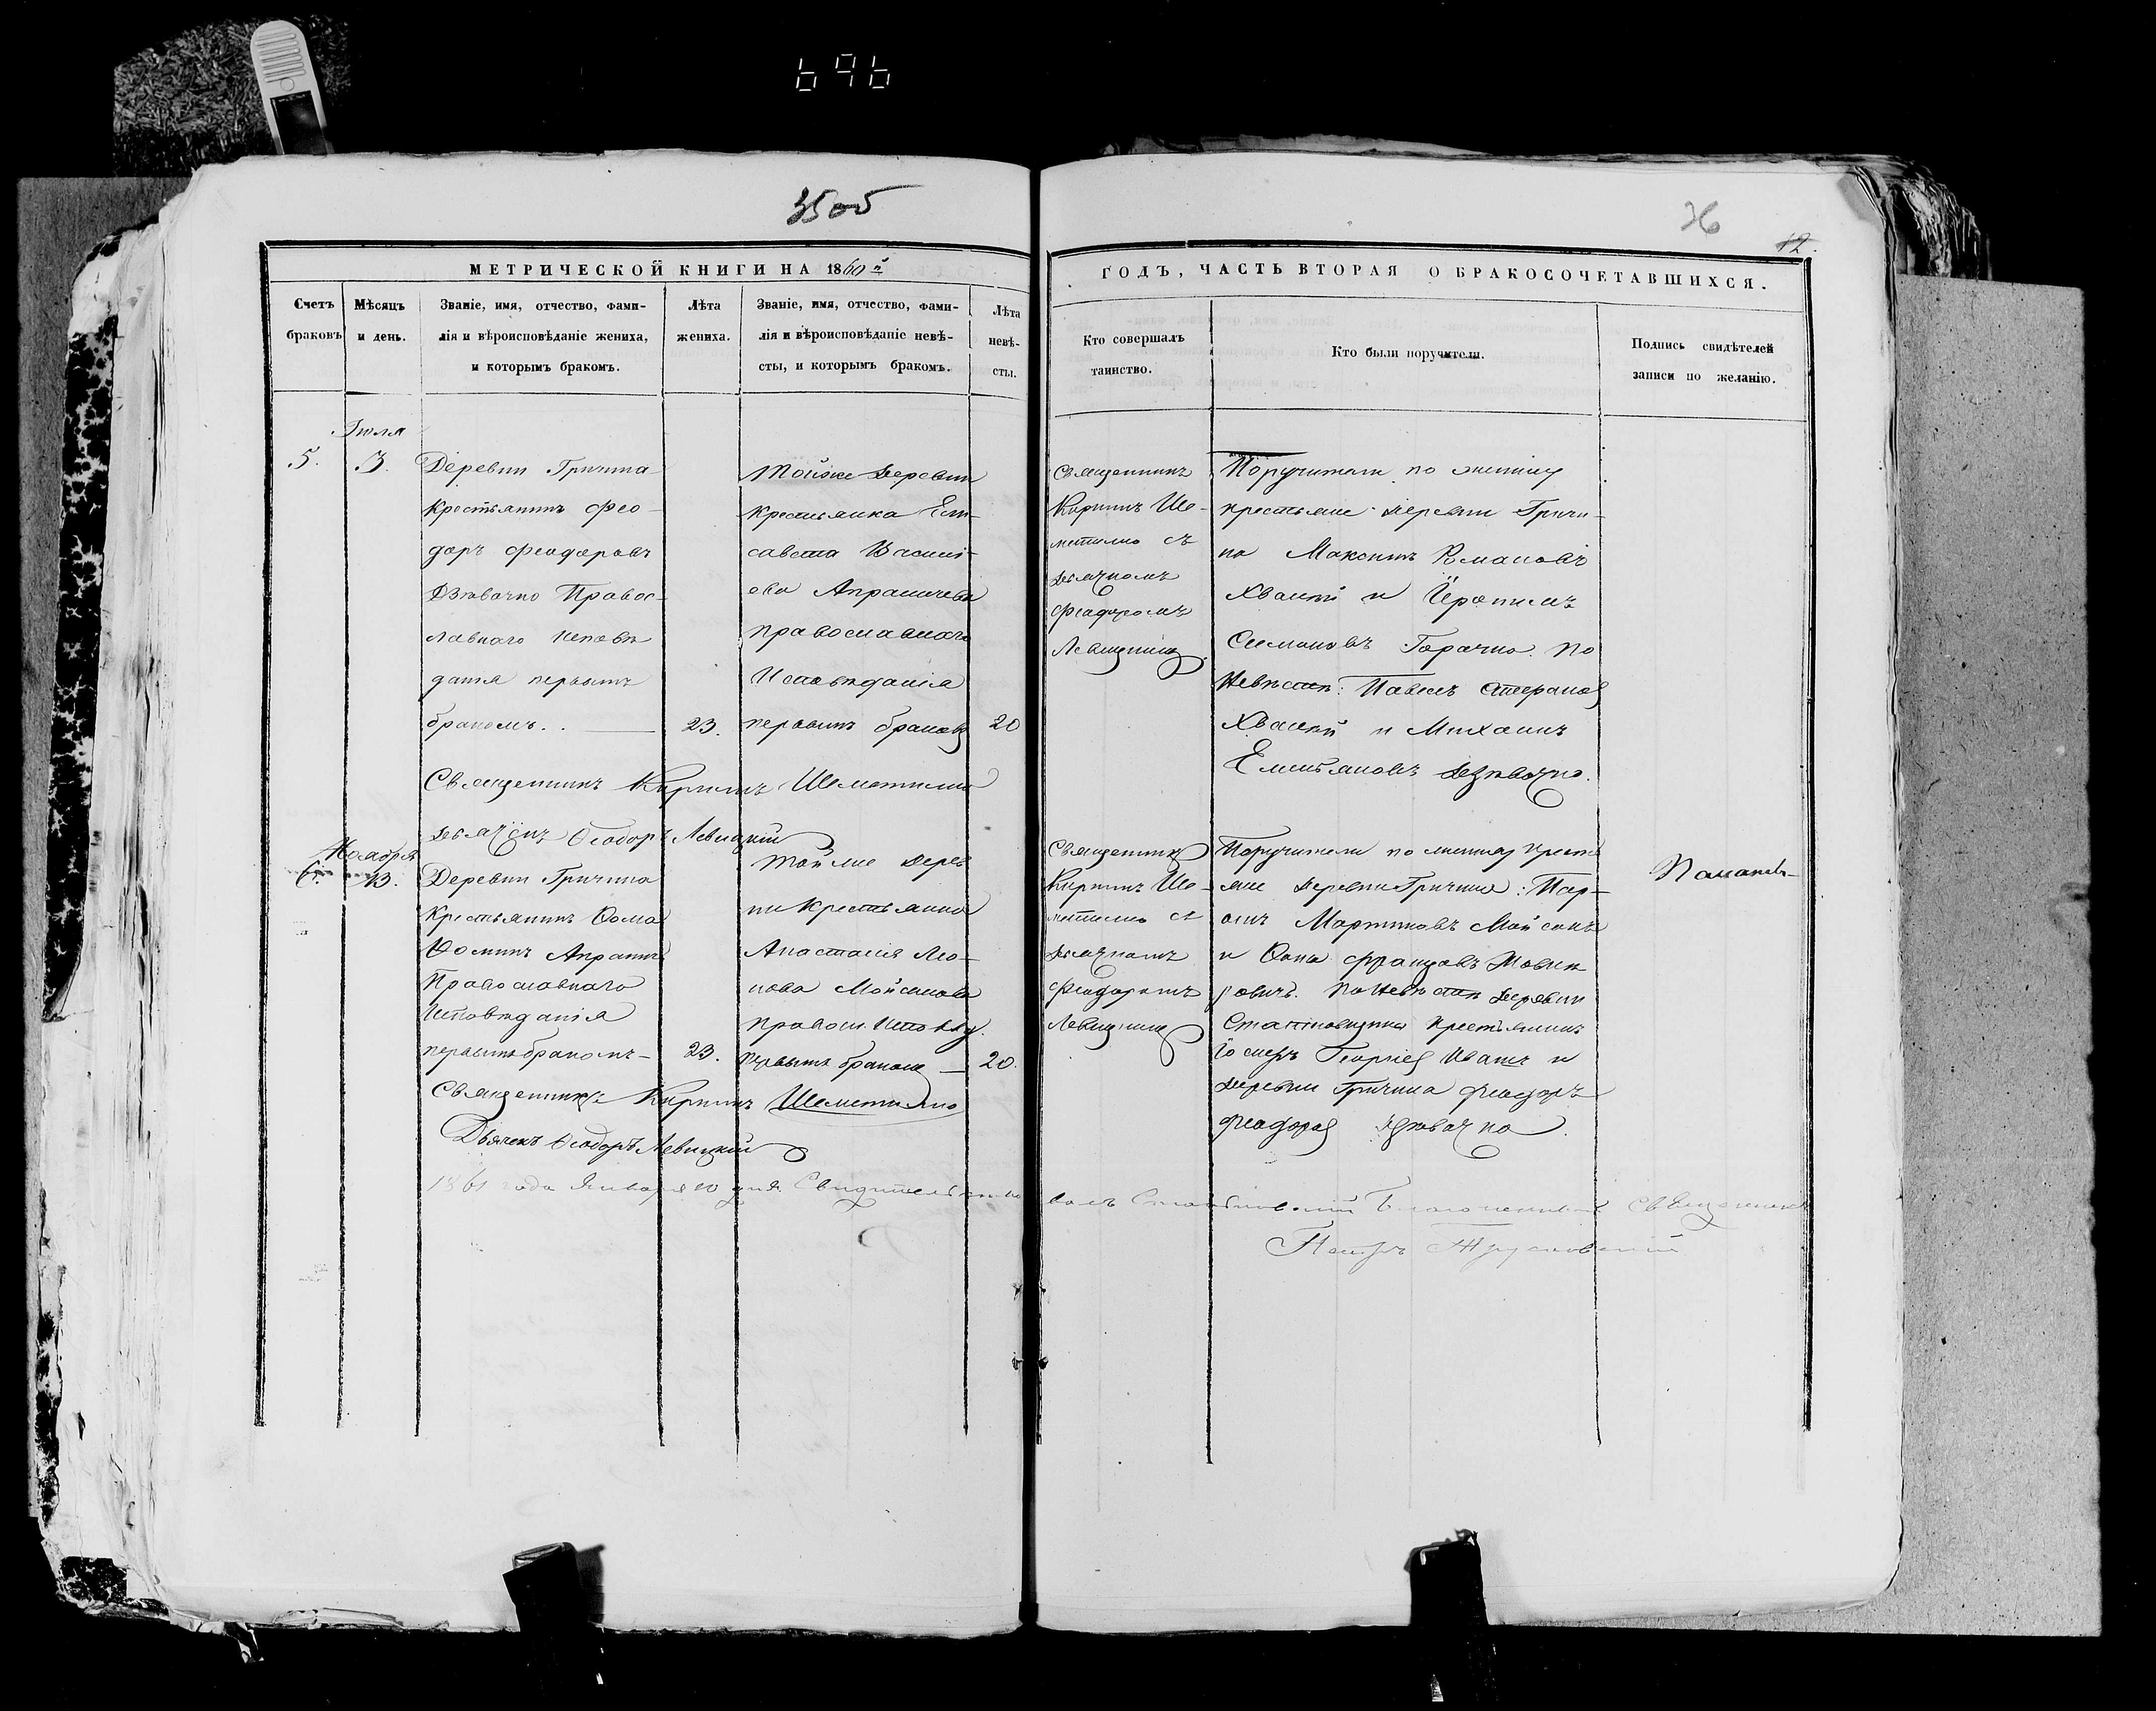 696
3505
36
12.
МЕТРИЧЕСКОЙ КНИГИ НА 1860й
ГОДЪ, ЧАСТЬ ВТОРАЯ О БРАКОСОЧЕТАВШИХСЯ.
Счетъ
браковъ
Мѣсяцъ
и день.
Званіе, имя, отчество, фами-
лія и вѣроисповѣданіе жениха,
и которымъ бракомъ.
Лѣта
жениха.
Званіе, имя, отчество, фами-
лія и вѣроисповѣданіе невѣ-
сты, и которымъ бракомъ.
Лѣта
невѣ-
сты.
Кто совершалъ
таинство.
Кто были поручители.
Подпись свидѣтелей
записи по желанію.
Іюля
5.
3.
Деревни Гричина
Крестьянинъ Фео-
доръ Феодоровъ
Дзювачко Правос-
лавнаго исповѣ
данія первымъ
бракомъ..
23.
Тойже деревни
Крестьянка Ели-
савета Василі-
ова
православнаго
Исповѣданія
первымъ бракомъ
20
Священникъ
Кириллъ Ше-
метилло съ
дьячкомъ
Феодоромъ
Левицкимъ
Поручители по жениху
крестьяне деревни Гричи-
на Максимъ Романовъ
и
Симоновъ Горачко. По
Невѣстѣ: Павелъ Стефановъ
и Михаилъ
Емельяновъ Дзювачко.
Священникъ Кириллъ Шеметилло
дьячекъ Ѳеодоръ Левицкій
Ноября
6.
13.
Деревни Гричина
Крестьянинъ Ѳома
Ѳоминъ
Православнаго
Исповѣданія
первымъ бракомъ-
23.
Тойже дерев
ни Крестьянка
Анастасія Лео-
нова
правосл. Исповѣд.
первымъ бракомъ
20.
Священникъ
Кириллъ Ше-
метилло съ
дьячкомъ
Феодоромъ
Левицкимъ
Поручители по жениху кресть
яне деревни Гричина:
Мартиновъ
и Ѳома Францовъ
По Невѣстѣ деревни
крестьянинъ
Іосифъ Георгіев Ивашъ и
деревни Гричина Феодоръ
Феодоров Дзювачко.
Священникъ Кириллъ Шеметилло
Дьячекъ Ѳеодоръ Левицкій
1861 года Января 10 дня Свидѣтельство
валъ Благочинный Священникъ
Петръ